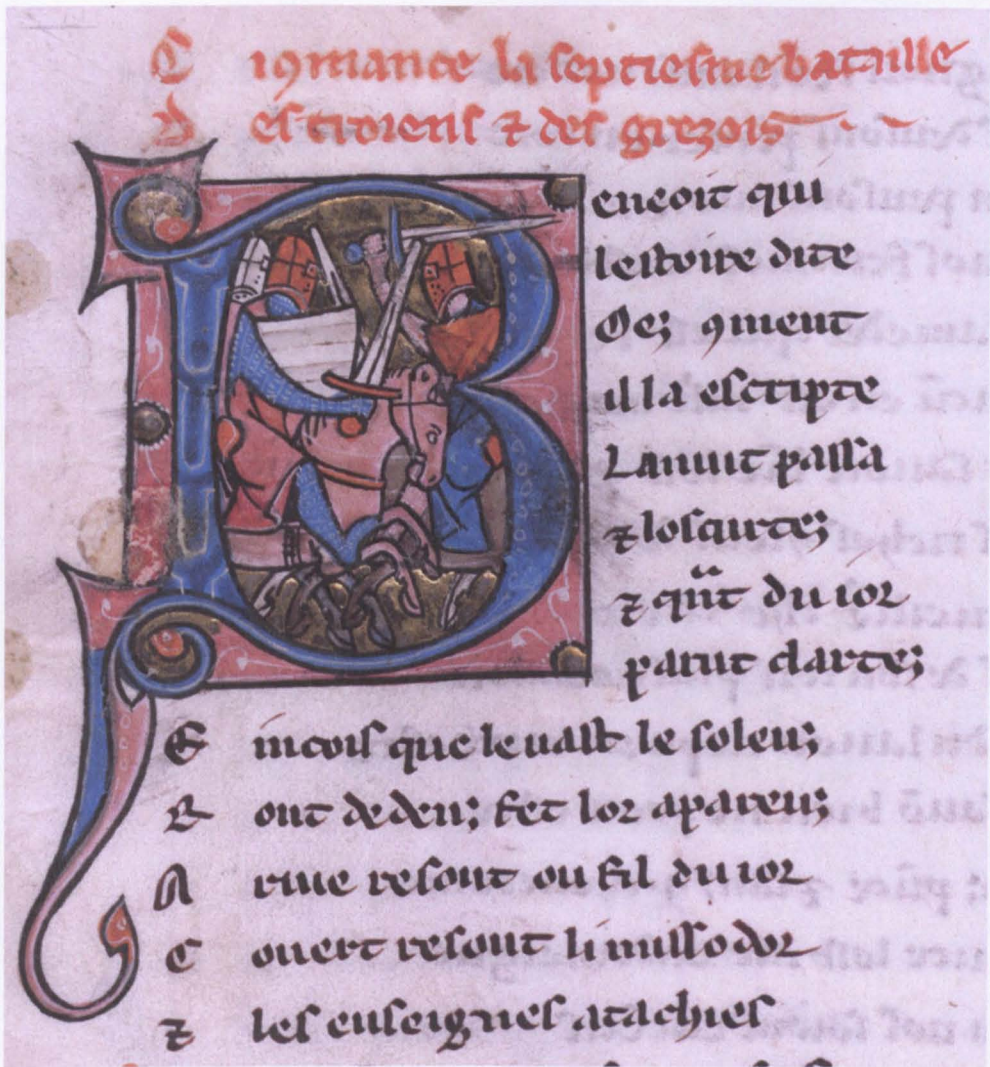 C i ꝯmance la septiesme bataille
D es troiens ⁊ des grezois
B eneoit qui
lestoire dite
Oez ꝯment
il la escripte
La nuit passa
⁊ loscurtez
⁊ quāt du ior
parut clartez
E incois que levast le soleuz
R ont dedenz fet lor apareuz
A rme resont ou fil du ior
C overt resont li missodor
⁊ les enseignes atachies